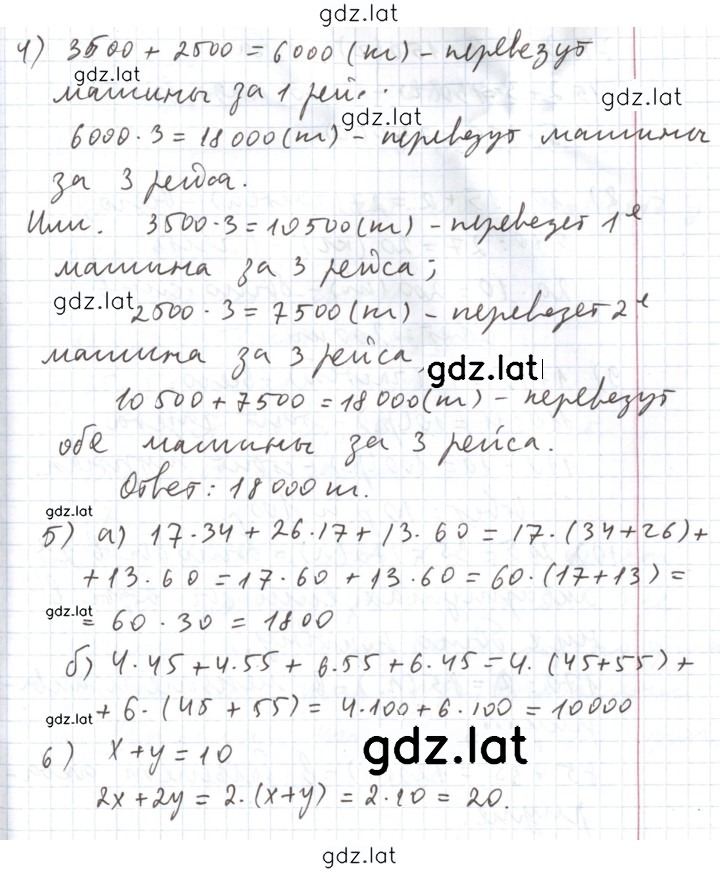 gdz.latт
4) 3500 + 2500 = 6000 (т) - перевезут
gdz.lat
машины за 1 рейс.
gdz.lat
gdz.lat
6000 · 3 = 18 000 (т) - перевезут машины
за 3 рейса.
Или. 3500 · 3 = 10 500 (т) - перевезет 1е
машина за 3 рейса;
gdz.lat
2500 · 3 = 7500 (т) - перевезет 2е
машина за 3 рейса
gdz.lat
10 500 + 7500 = 18 000 (т) - перевезут
обе машины за 3 рейса.
Ответ: 18 000 т.
gdz.lat
5) а) 17·34 + 26·17 + 13·60 = 17·(34+26) +
+ 13·60 = 17·60 + 13·60 = 60·(17+13) =
gdz.lat
= 60 · 30 = 1800
б) 4·45 + 4·55 + 6·55 + 6·45 = 4·(45+55) +
gdz.lat
+ 6·(45 + 55) = 4·100 + 6·100 = 10000
6) x + y = 10
gdz.lat
2x + 2y = 2·(x+y) = 2·10 = 20.
gdz.lat